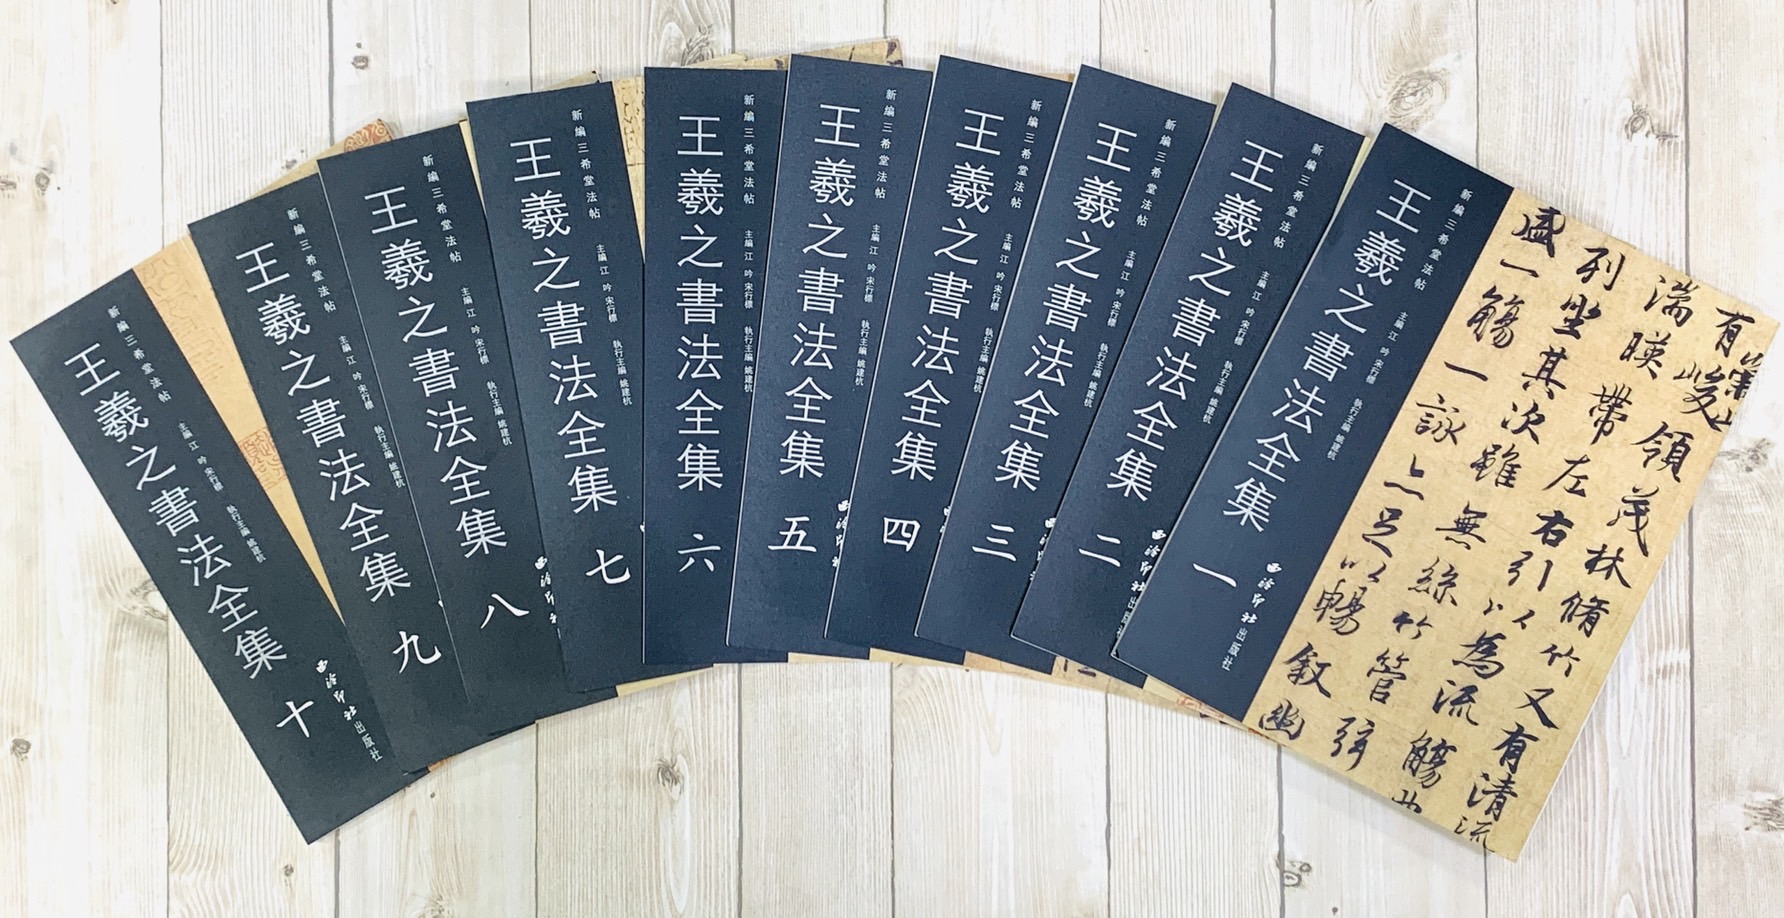 有崇山峻領茂林脩竹又有清流
湍暎帶左右引以為流觴
列坐其次雖無絲竹管弦
盛一觴一詠亦足以暢敘幽
新編三希堂法帖 主編 江吟 宋行標 執行主編 姚建杭 西泠印社出版社
王羲之書法全集 一
新編三希堂法帖 主編 江吟 宋行標 執行主編 姚建杭
王羲之書法全集 二
新編三希堂法帖 主編 江吟 宋行標 執行主編 姚建杭
王羲之書法全集 三
新編三希堂法帖 主編 江吟 宋行標 執行主編 姚建杭
王羲之書法全集 四
新編三希堂法帖 主編 江吟 宋行標 執行主編 姚建杭
王羲之書法全集 五
新編三希堂法帖 主編 江吟 宋行標 執行主編 姚建杭
王羲之書法全集 六
新編三希堂法帖 主編 江吟 宋行標 執行主編 姚建杭
王羲之書法全集 七
新編三希堂法帖 主編 江吟 宋行標 執行主編 姚建杭 西泠印社
王羲之書法全集 八
新編三希堂法帖 主編 江吟 宋行標 執行主編 姚建杭
王羲之書法全集 九
新編三希堂法帖 主編 江吟 宋行標 執行主編 姚建杭 西泠印社出版社
王羲之書法全集 十